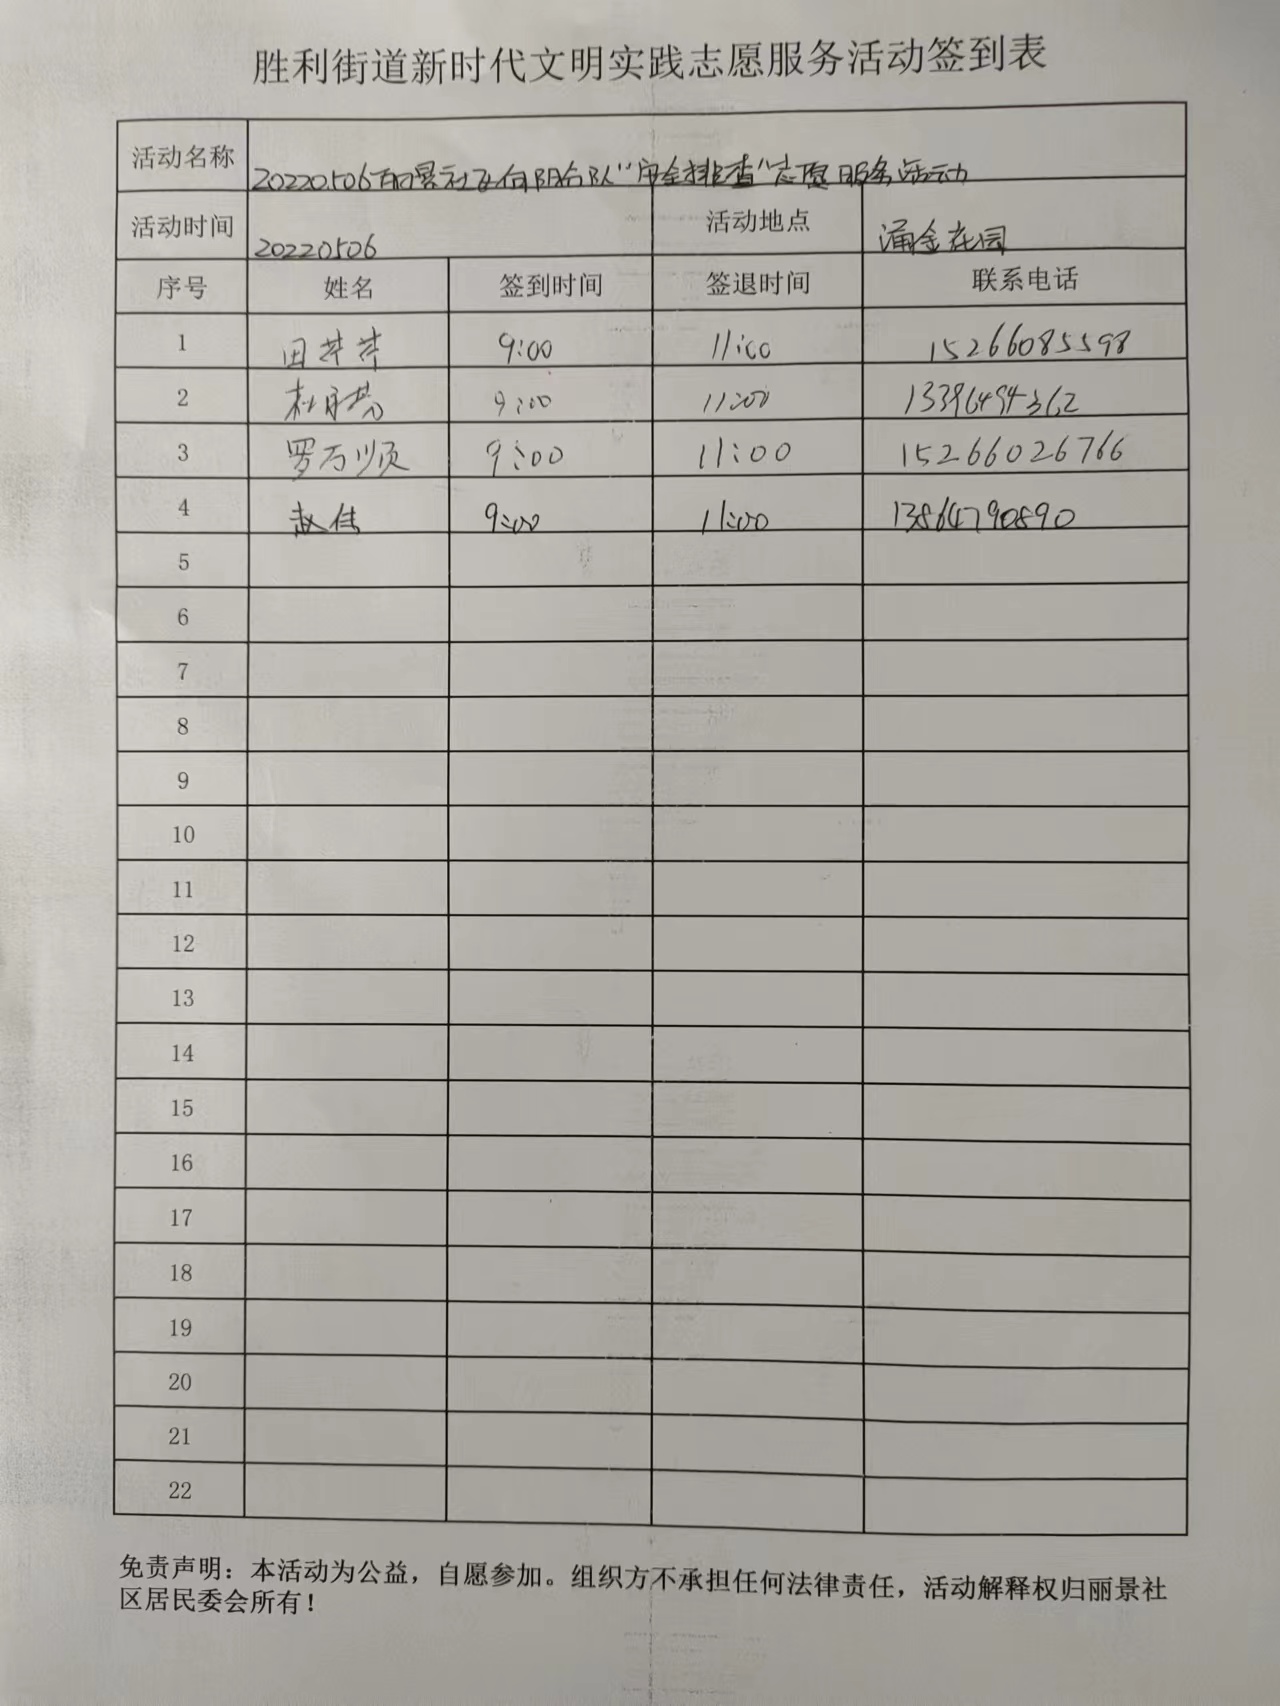 胜利街道新时代文明实践志愿服务活动签到表
活动名称 20220506丽景社区向阳分队“安全排查”志愿服务活动
活动时间 20220506 活动地点 涌金花园
序号 姓名 签到时间 签退时间 联系电话
1 田芹芹 9:00 11:00 15266085598
2 9:00 11:00 13396494362
3 罗万顺 9:00 11:00 15266026766
4 赵伟 9:00 11:00 13864790890
5
6
7
8
9
10
11
12
13
14
15
16
17
18
19
20
21
22
免责声明：本活动为公益，自愿参加。组织方不承担任何法律责任，活动解释权归丽景社
区居民委会所有！